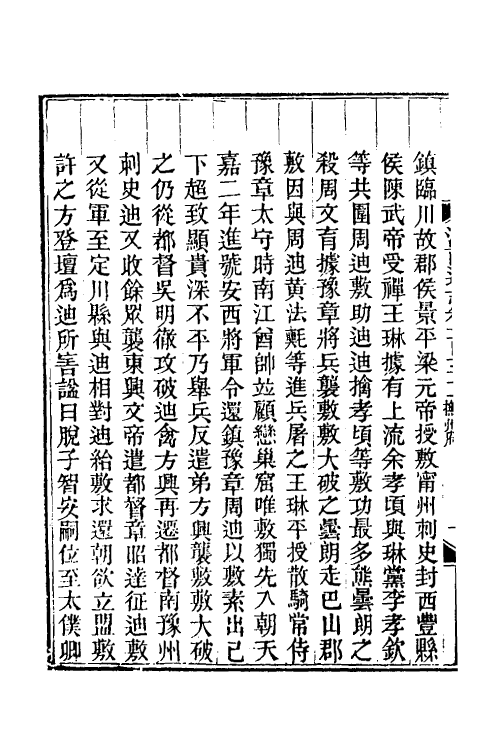 鎮臨川故郡侯景平梁元帝授敷甯州刺史封西豐縣
侯陳武帝受禪王琳據有上流余孝頃與琳黨李孝欽
等共圍周迪敷助迪迪擒孝頃等敷功最多熊曇朗之
殺周文育據豫章將兵襲敷敷大破之曇朗走巴山郡
敷因與周迪黃法𣰰等進兵屠之王琳平授散騎常侍
豫章太守時南江酋帥並顧戀巢窟唯敷獨先入朝天
嘉二年進號安西將軍令還鎮豫章周迪以敷素出己
下超致顯貴深不平乃舉兵反遣弟方興襲敷敷大破
之仍從都督吳明徹攻破迪禽方興再遷都督南豫州
刺史迪又收餘眾襲東興文帝遣都督章昭達征迪敷
又從軍至定川縣與迪相對迪紿敷求還朝欲立盟敷
許之方登壇爲迪所害謚曰脫子智安嗣位至太僕卿